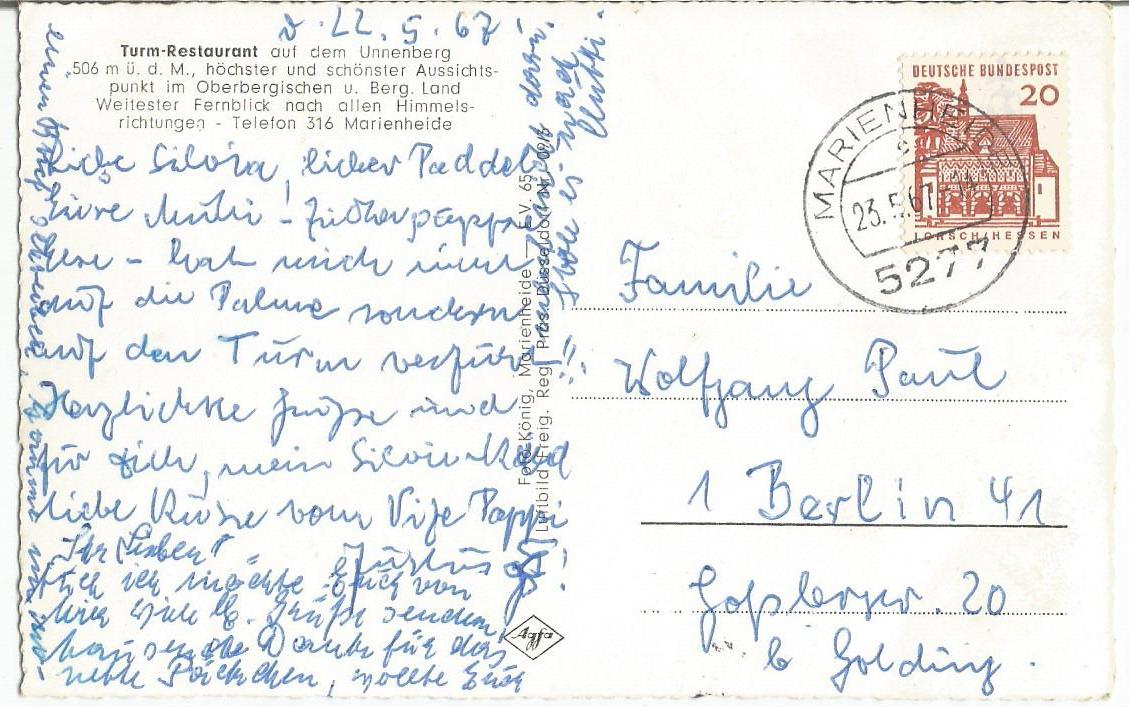 d. 22.5.67
Turm-Restaurant auf dem Unnenberg
506 m ü. d. M., höchster und schönster Aussichts-
punkt im Oberbergischen u. Berg. Land
Weitester Fernblick nach allen Himmels-
richtungen - Telefon 316 Marienheide
Liebe Silvia, lieber Paddel!
Eure Mutti -
hat mich nicht
auf die Palme sondern
auf den Turm verführt!!
Herzlichste Grüße und
für Dich, mein Silvia-Kind
liebe Küsse vom Vize Pappi
Justus
Ihr Lieben!
Auch ich möchte Euch von
hier viele lb. Grüße senden
tausend Dank für das
nette Päckchen, wollte Euch
einen Brief
komme
daran.
hole es nach
Mutti
Foto-König, Marienheide — F.V. 65
Luftbild Freig. Reg. Präs. Düsseldorf Nr. 09/3
Agfa
DEUTSCHE BUNDESPOST
20
LORSCH/HESSEN
MARIENHEIDE
23.5.67
5277
Familie
Wolfgang Paul
1 Berlin 41
Goßlerstr. 20
b Golding.